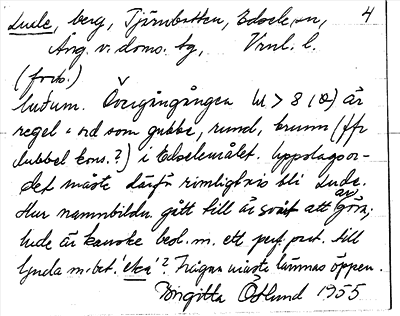 Lude, berg, Tjärnbotten, Edsele sn, 4
Ång. v. doms. tg, Vnl. l.
(forts.)
ludum. Övergångången u > 8 (ɵ) är
regel i ord som gubbe, rund, brunn (ffr
dubbel kons.?) i Edselemålet. Uppslagsor-
det måste därför rimligtvis bli Lude.
Hur namnbildn. gått till är svårt att avgöra;
lude är kanske besl. m. ett perf. part. till
ljuda m. bet. 'eka'? Frågan måste lämnas öppen.
Birgitta Östlund 1955